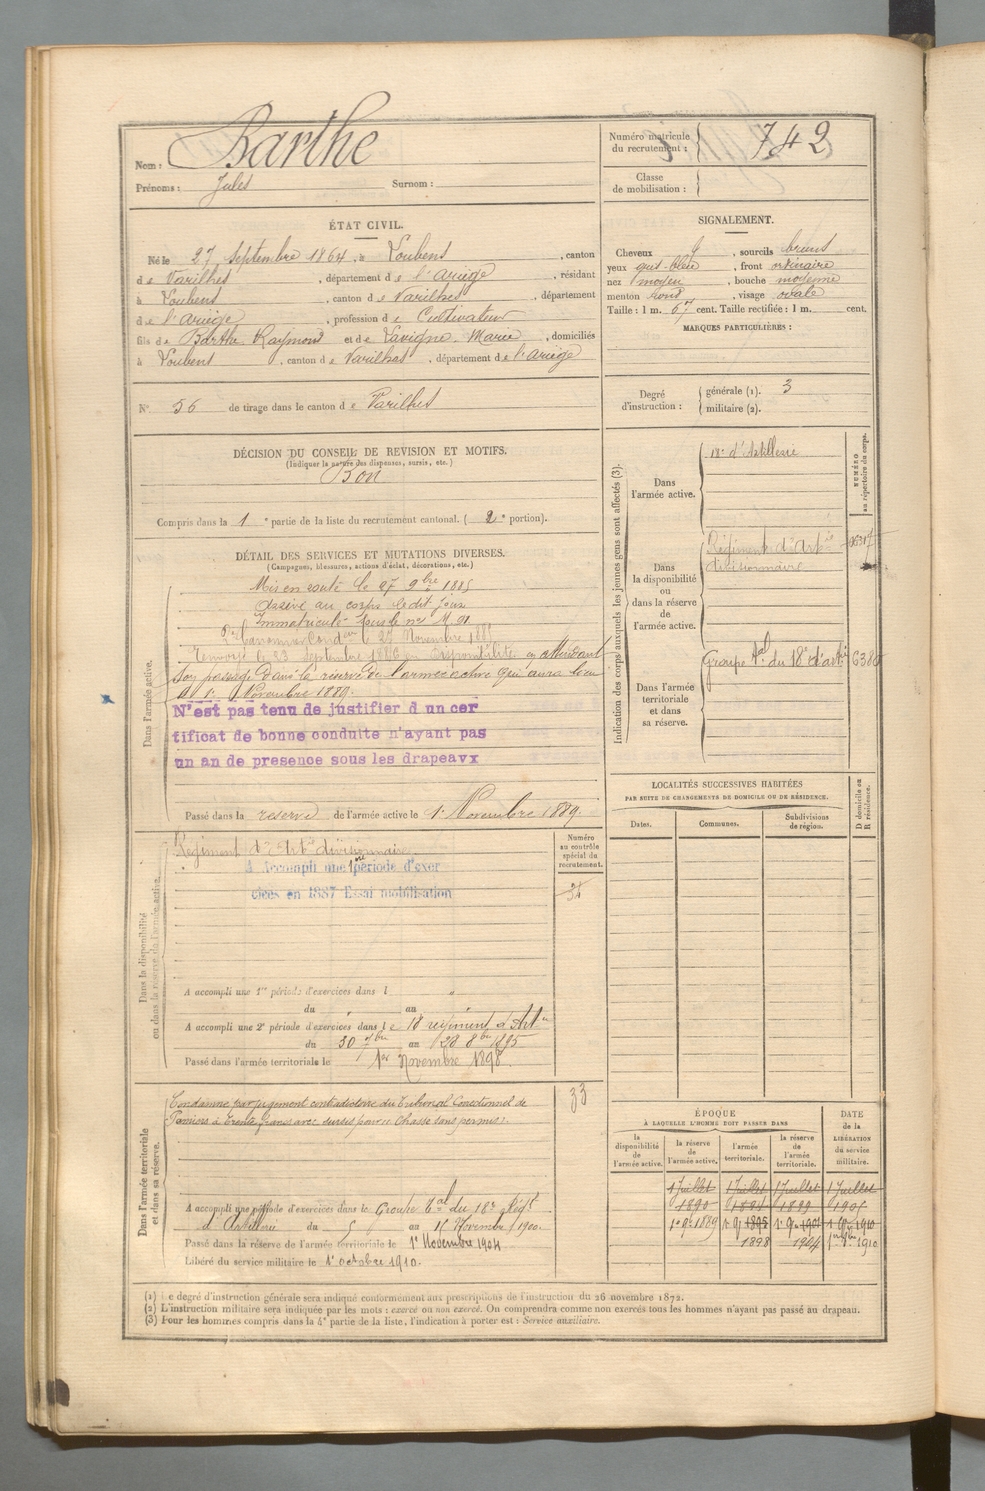 Nom : Barthe
Prénoms : Jules Surnom :
Numéro matricule du recrutement : 742
Classe de mobilisation :
ÉTAT CIVIL.
Né le 27 Septembre 1864, à Loubens, canton
de Varilhes, département de l'Ariège, résidant
à Loubens, canton de Varilhes, département
de l'Ariège, profession de Cultivateur
fils de Barthe Raymond et de Lavigne Marie, domiciliés
à Loubens, canton de Varilhes, département de l'ariège
N° 56 de tirage dans le canton de Varilhes
SIGNALEMENT.
Cheveux , sourcils bruns
yeux gris-bleu, front ordinaire
nez moyen, bouche moyenne
menton rond, visage ovale
Taille : 1 m. 67 cent. Taille rectifiée : 1 m. cent.
MARQUES PARTICULIÈRES :
Degré d'instruction : générale (1). 3
militaire (2).
DÉCISION DU CONSEIL DE REVISION ET MOTIFS.
(Indiquer la nature des dispenses, sursis, etc.)
Bon
Compris dans la 1e partie de la liste du recrutement cantonal. (2e portion).
DÉTAIL DES SERVICES ET MUTATIONS DIVERSES.
(Campagnes, blessures, actions d'éclat, décorations, etc.)
Dans l'armée active.
Mis en route le 27 9bre 1885
Arrivé au corps le dit jour
Immatriculé sous le no M.91.
2e Canonnier Condeur le 27 Novembre 1885
Renvoyé le 23 Septembre 1886 en disponibilité en attendant
son passage dans la réserve de l'armée active qui aura lieu
le 1er Novembre 1889.
N'est pas tenu de justifier d un cer
tificat de bonne conduite n'ayant pas
un an de presence sous les drapeavx
Passé dans la réserve de l'armée active le 1er Novembre 1889.
Dans la disponibilité ou dans la réserve de l'armée active.
Régiment d'Artie divisionnaire
A Accompli une 1ère période d'exer
cices en 1887 Essai mobilisation
Numéro au contrôle spécial du recrutement.
34
A accompli une 1re période d'exercices dans l "
du " au "
A accompli une 2e période d'exercices dans le 18 régiment d'Artie
du 30 7bre au 28 8bre 1895
Passé dans l'armée territoriale le 1er Novembre 1898.
Dans l'armée territoriale et dans sa réserve.
33
Condamné par jugement contradictoire du Tribunal Correctionnel de
Pamiers à trente francs avec sursis pour Chasse sans permis.
A accompli une période d'exercices dans le Groupe tal du 18e Régt
d'Artillerie du 5 au 15 Novembre 1900.
Passé dans la réserve de l'armée territoriale le 1er Novembre 1904
Libéré du service militaire le 1er octobre 1910.
Indication des corps auxquels les jeunes gens sont affectés (3).
NUMÉRO au répertoire du corps.
Dans l'armée active.
18e d'Artillerie
Dans la disponibilité ou dans la réserve de l'armée active.
Régiment d'Artie
divisionnaire
Dans l'armée territoriale et dans sa réserve.
Groupe tal du 18e d'artie
LOCALITÉS SUCCESSIVES HABITÉES
PAR SUITE DE CHANGEMENTS DE DOMICILE OU DE RÉSIDENCE.
Dates. Communes. Subdivisions de région. D domicile ou R résidence.
ÉPOQUE
À LAQUELLE L'HOMME DOIT PASSER DANS
la disponibilité de l'armée active. la réserve de l'armée active. l'armée territoriale. la réserve de l'armée territoriale.
DATE de la LIBÉRATION du service militaire.
1 Juillet 1 Juillet 1 Juillet 1 Juillet
1890 1899
1er 9bre 1889 1895
1898 1904
(1) Le degré d'instruction générale sera indiqué conformément aux prescriptions de l'instruction du 26 novembre 1872.
(2) L'instruction militaire sera indiquée par les mots : exercé ou non exercé. On comprendra comme non exercés tous les hommes n'ayant pas passé au drapeau.
(3) Pour les hommes compris dans la 4e partie de la liste, l'indication à porter est : Service auxiliaire.